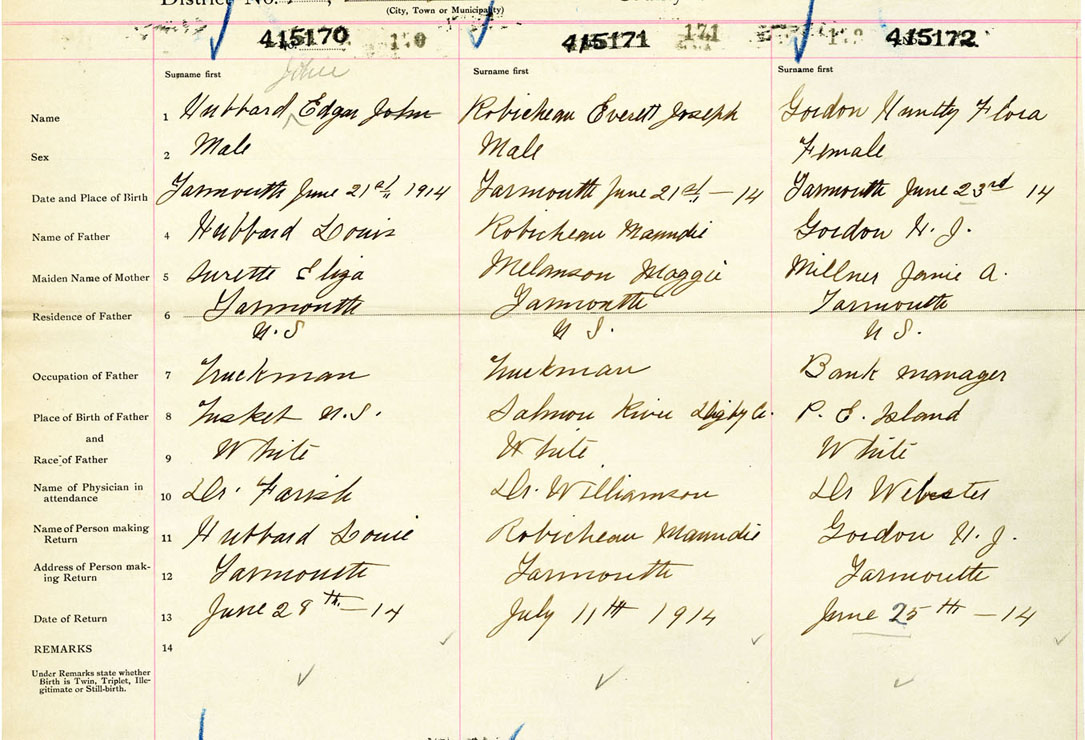 District No.
(City, Town or Municipality)
415170 170 415171 171 415172
Surname first Surname first Surname first
John
Name 1 Hubbard ^ Edgar John Robicheau Everett Joseph Gordon Huntly Flora
Sex 2 Male Male Female
Date and Place of Birth 3 Yarmouth June 21st, 1914 Yarmouth June 21st, - 14 Yarmouth June 23rd 14
Name of Father 4 Hubbard Louis Robicheau Maundie Gordon H. J.
Maiden Name of Mother 5 Surette Eliza Melanson Maggie Millner Janie A.
Residence of Father 6 Yarmouth Yarmouth Yarmouth
N. S N S. N S.
Occupation of Father 7 Truckman Truckman Bank manager
Place of Birth of Father 8 Tusket N.S. Salmon River Digby Co. P. E. Island
and
Race of Father 9 White White White
Name of Physician in
attendance 10 Dr. Farish Dr. Williamson Dr Webster
Name of Person making
Return 11 Hubbard Louie Robicheau Maundie Gordon H. J.
Address of Person mak-
ing Return 12 Yarmouth Yarmouth Yarmouth
Date of Return 13 June 28th - 14 July 11th 1914 June 25th - 14
REMARKS 14
Under Remarks state whether
Birth is Twin, Triplet, Ille-
gitimate or Still-birth.